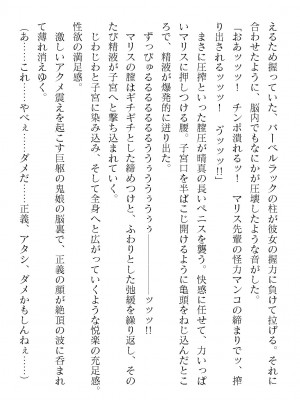 えるため握っていた、バーベルラックの柱が彼女の握力に負けて拉げる。それに
合わせたように、脳内でもなにかが圧壊したような音がした。
「おぁッッッ！　チンポ潰れるッ！　マリス先輩の怪力マンコの締まりでッ、搾
り出されるッッッ！　ゔッッッ!!」
まさに圧搾といった膣圧が晴真の長いペニスを襲う。快感に任せて、力いっぱ
いマリスに押しつける腰。子宮口を半ばこじ開けるように亀頭をねじ込んだとこ
ろで、精液が爆発的に迸り出た。
ずっぴゅるるるるるるうぅうぅうぅぅ――――――ッッッ!!
マリスの膣はギチギチとした締めつけと、ふわりとした弛緩を繰り返し、その
たび精液が子宮へと撃ち込まれていく。
じわじわと子宮に染み込み、そして全身へと広がっていくような悦楽の充足感。
性欲の満足感。
激しいアクメ震えを起こす巨躯の鬼娘の脳裏で、正義の顔が絶頂の波に呑まれ
て薄れ消えゆく。
（あ……これ……やべぇ……ダメだ……正義、アタシ、ダメかもしんねぇ……）